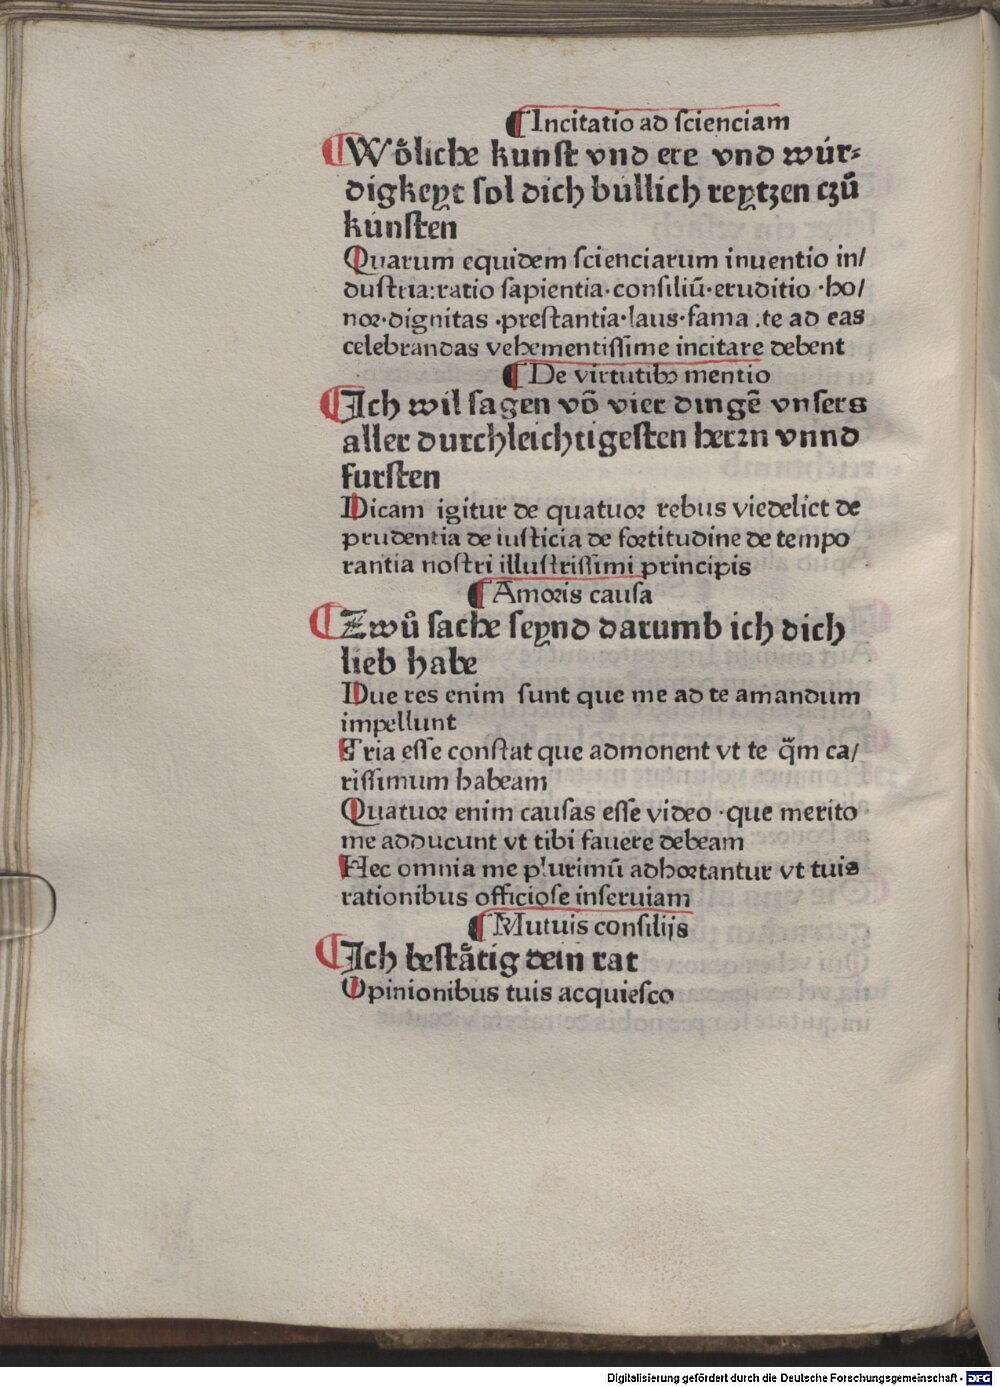 ¶Incitatio ad scienciam
¶Woͤliche kunst vnd ere vnd wúr⸗
digkeyt sol dich bullich reytzen czů
kúnsten
Quarum equidem scienciarum inuentio in/
dustria:ratio sapientia·consiliū·eruditio ·ho/
nor·dignitas ·prestantia·laus·fama .te ad eas
celebrandas vehementissime incitare debent
¶De virtutibꝰ mentio
¶Ich wil sagen vō vier dingē vnsers
aller durchleichtigesten herrn vnnd
fursten
Dicam igitur de quatuor rebus viedelict de
prudentia de iusticia de fortitudine de tempo
rantia nostri illustrissimi principis
¶Amoris causa
¶Zwů sache seynd darumb ich dich
lieb habe
Due res enim sunt que me ad te amandum
impellunt
Tria esse constat que admonent vt te q̄m ca/
rissimum habeam
Quatuor enim causas esse video ·que merito
me adducunt vt tibi fauere debeam
Hec omnia me plurimū adhortantur vt tuis
rationibus officiose inseruiam
¶Mutuis consilijs
¶Ich bestaͤtig dein rat
Opinionibus tuis acquiesco
Digitalisierung gefördert durch die Deutsche Forschungsgemeinschaft - DFG